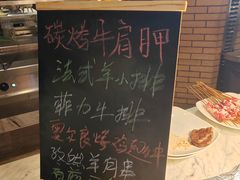 碳烤牛肩胛
法式羊小排
菲力牛排
奥尔良烤鸡肉串
孜然羊肉串